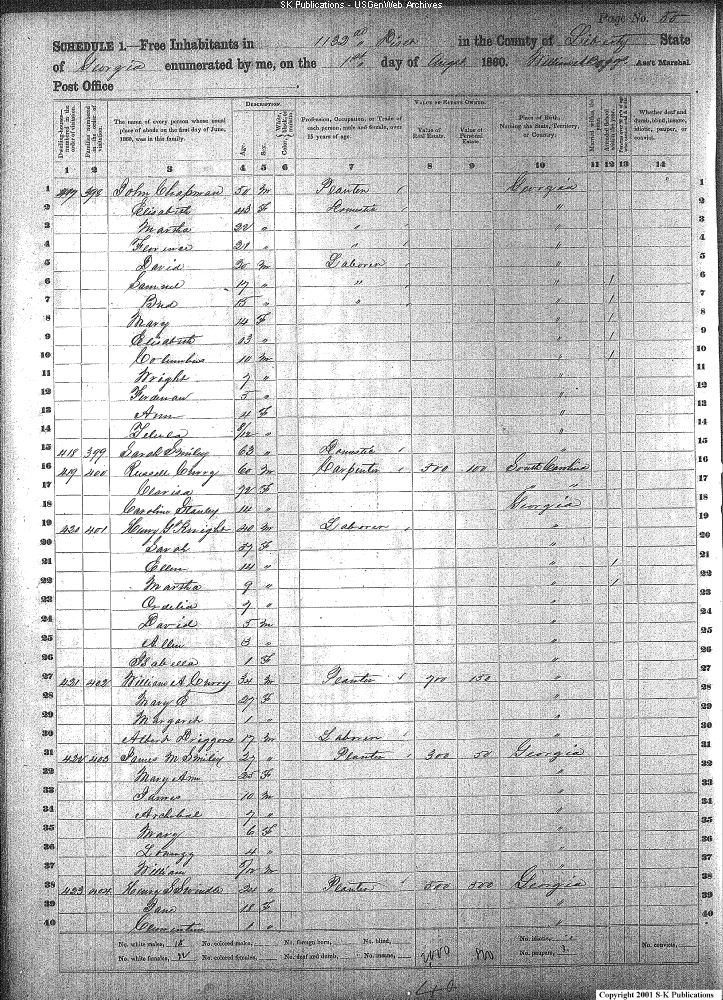 SK Publications - USGenWeb Archives
Page No. 50
SCHEDULE 1.—Free Inhabitants in 1132 Dist in the County of Liberty State
of Georgia enumerated by me, on the 1st day of 1860. Ass't Marshal.
Post Office
Dwelling-houses—numbered in the order of visitation.
Families numbered in the order of visitation.
The name of every person whose usual place of abode on the first day of June, 1860, was in this family.
DESCRIPTION.
Age.
Sex.
Color, White, black, or mulatto.
Profession, Occupation, or Trade of each person, male and female, over 15 years of age.
VALUE OF ESTATE OWNED.
Value of Real Estate.
Value of Personal Estate.
Place of Birth, Naming the State, Territory, or Country.
Married within the year.
Attended School within the year.
Whether deaf and dumb, blind, insane, idiotic, pauper, or convict.
1 2 3 4 5 6 7 8 9 10 11 12 13 14
1 417 398 John Chapman 50 M Planter Georgia 1
2 Elisabeth 43 F Domestic " 2
3 Martha 22 " " " 3
4 21 " " " 4
5 David 20 M Laborer " 5
6 Samuel 17 " " " 1 6
7 15 " " " 1 7
8 Mary 14 F " 1 8
9 Elisabeth 13 " " 1 9
10 Columbus 10 M " 1 10
11 Wright 7 " " 11
12 5 " " 12
13 Ann 4 F " 13
14 " " 14
15 418 399 Sarah Smiley 63 " Domestic " 15
16 419 400 Russell Curry 60 M Carpenter 500 100 South Carolina 16
17 Clarisa 72 F " " 17
18 Caroline Stanley 14 " Georgia 18
19 420 401 Henry G Knight 40 M Laborer " 19
20 Sarah 37 F " 20
21 Ellen 14 " " 1 21
22 Martha 9 " " 1 22
23 Ordelia 7 " " 23
24 David 5 M " 24
25 Allen 3 " " 25
26 Isabella 1 F " 26
27 421 402 William A Curry 34 M Planter 700 150 " 27
28 Mary E 27 F " 28
29 Margaret 1 " " 29
30 Albert Driggors 17 M Laborer " 30
31 422 403 James M Smiley 27 " Planter 300 50 Georgia 31
32 Mary Ann 25 F " 32
33 James 10 M " 33
34 Archibal 7 " " 34
35 Mary 6 F " 35
36 4 " " 36
37 William 5/12 M " 37
38 423 404 Henry S Swindle 24 " Planter 500 500 Georgia 38
39 Jane 18 F " 39
40 Clementine 1 " " 40
No. white males, 18 No. colored males, No. foreign born, No. blind, No. idiotic, No. convicts,
No. white females, 22 No. colored females, No. deaf and dumb, No. insane, 2000 800 No. paupers,
Copyright 2001 S-K Publications